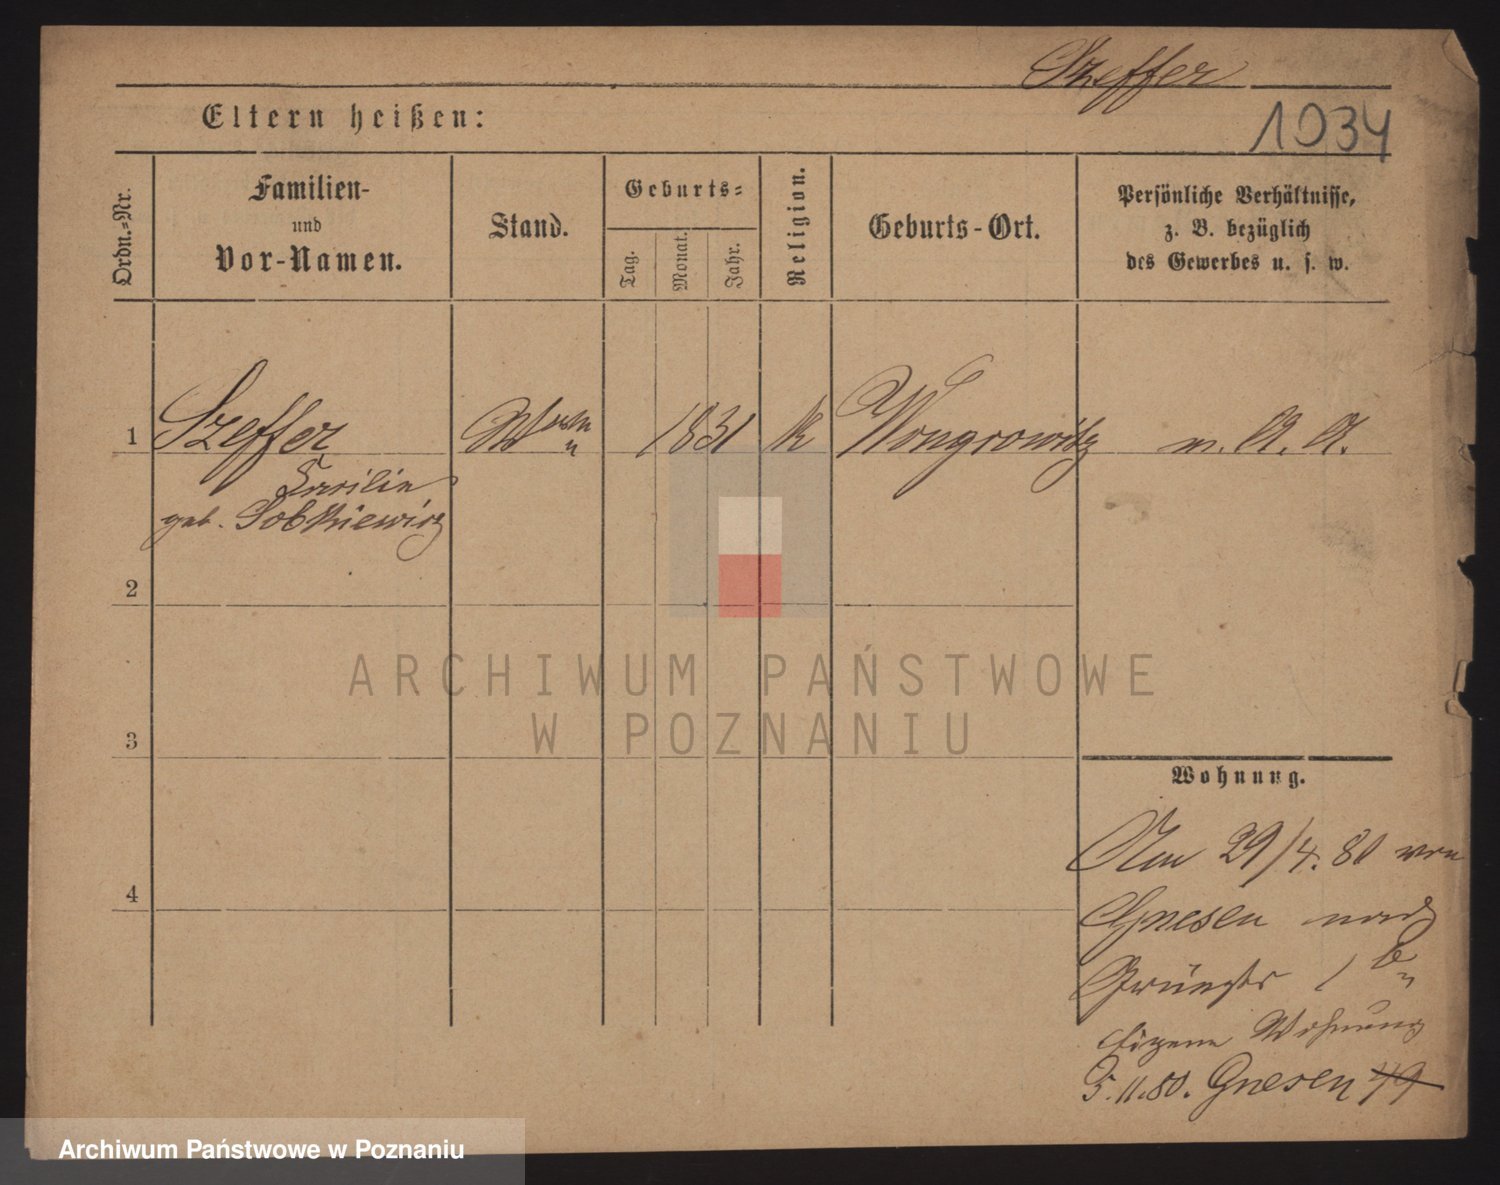 Szeffer
Eltern heißen:
1034
Ordn.-Nr.
Familien-
und
Vor-Namen.
Stand.
Geburts-
Tag.
Monat.
Jahr.
Religion.
Geburts-Ort.
Persönliche Verhältnisse,
z. B. bezüglich
des Gewerbes u. s. w.
1 Szeffer 1831 K Wongrowitz m. A. A.
geb. Sobkiewicz
2
3
4
ARCHIWUM PAŃSTWOWE
W POZNANIU
Wohnung.
Am 29/4. 80 von
Gnesen nach
1
eigene Wohnung
5.11.80. Gnesen 49
Archiwum Państwowe w Poznaniu